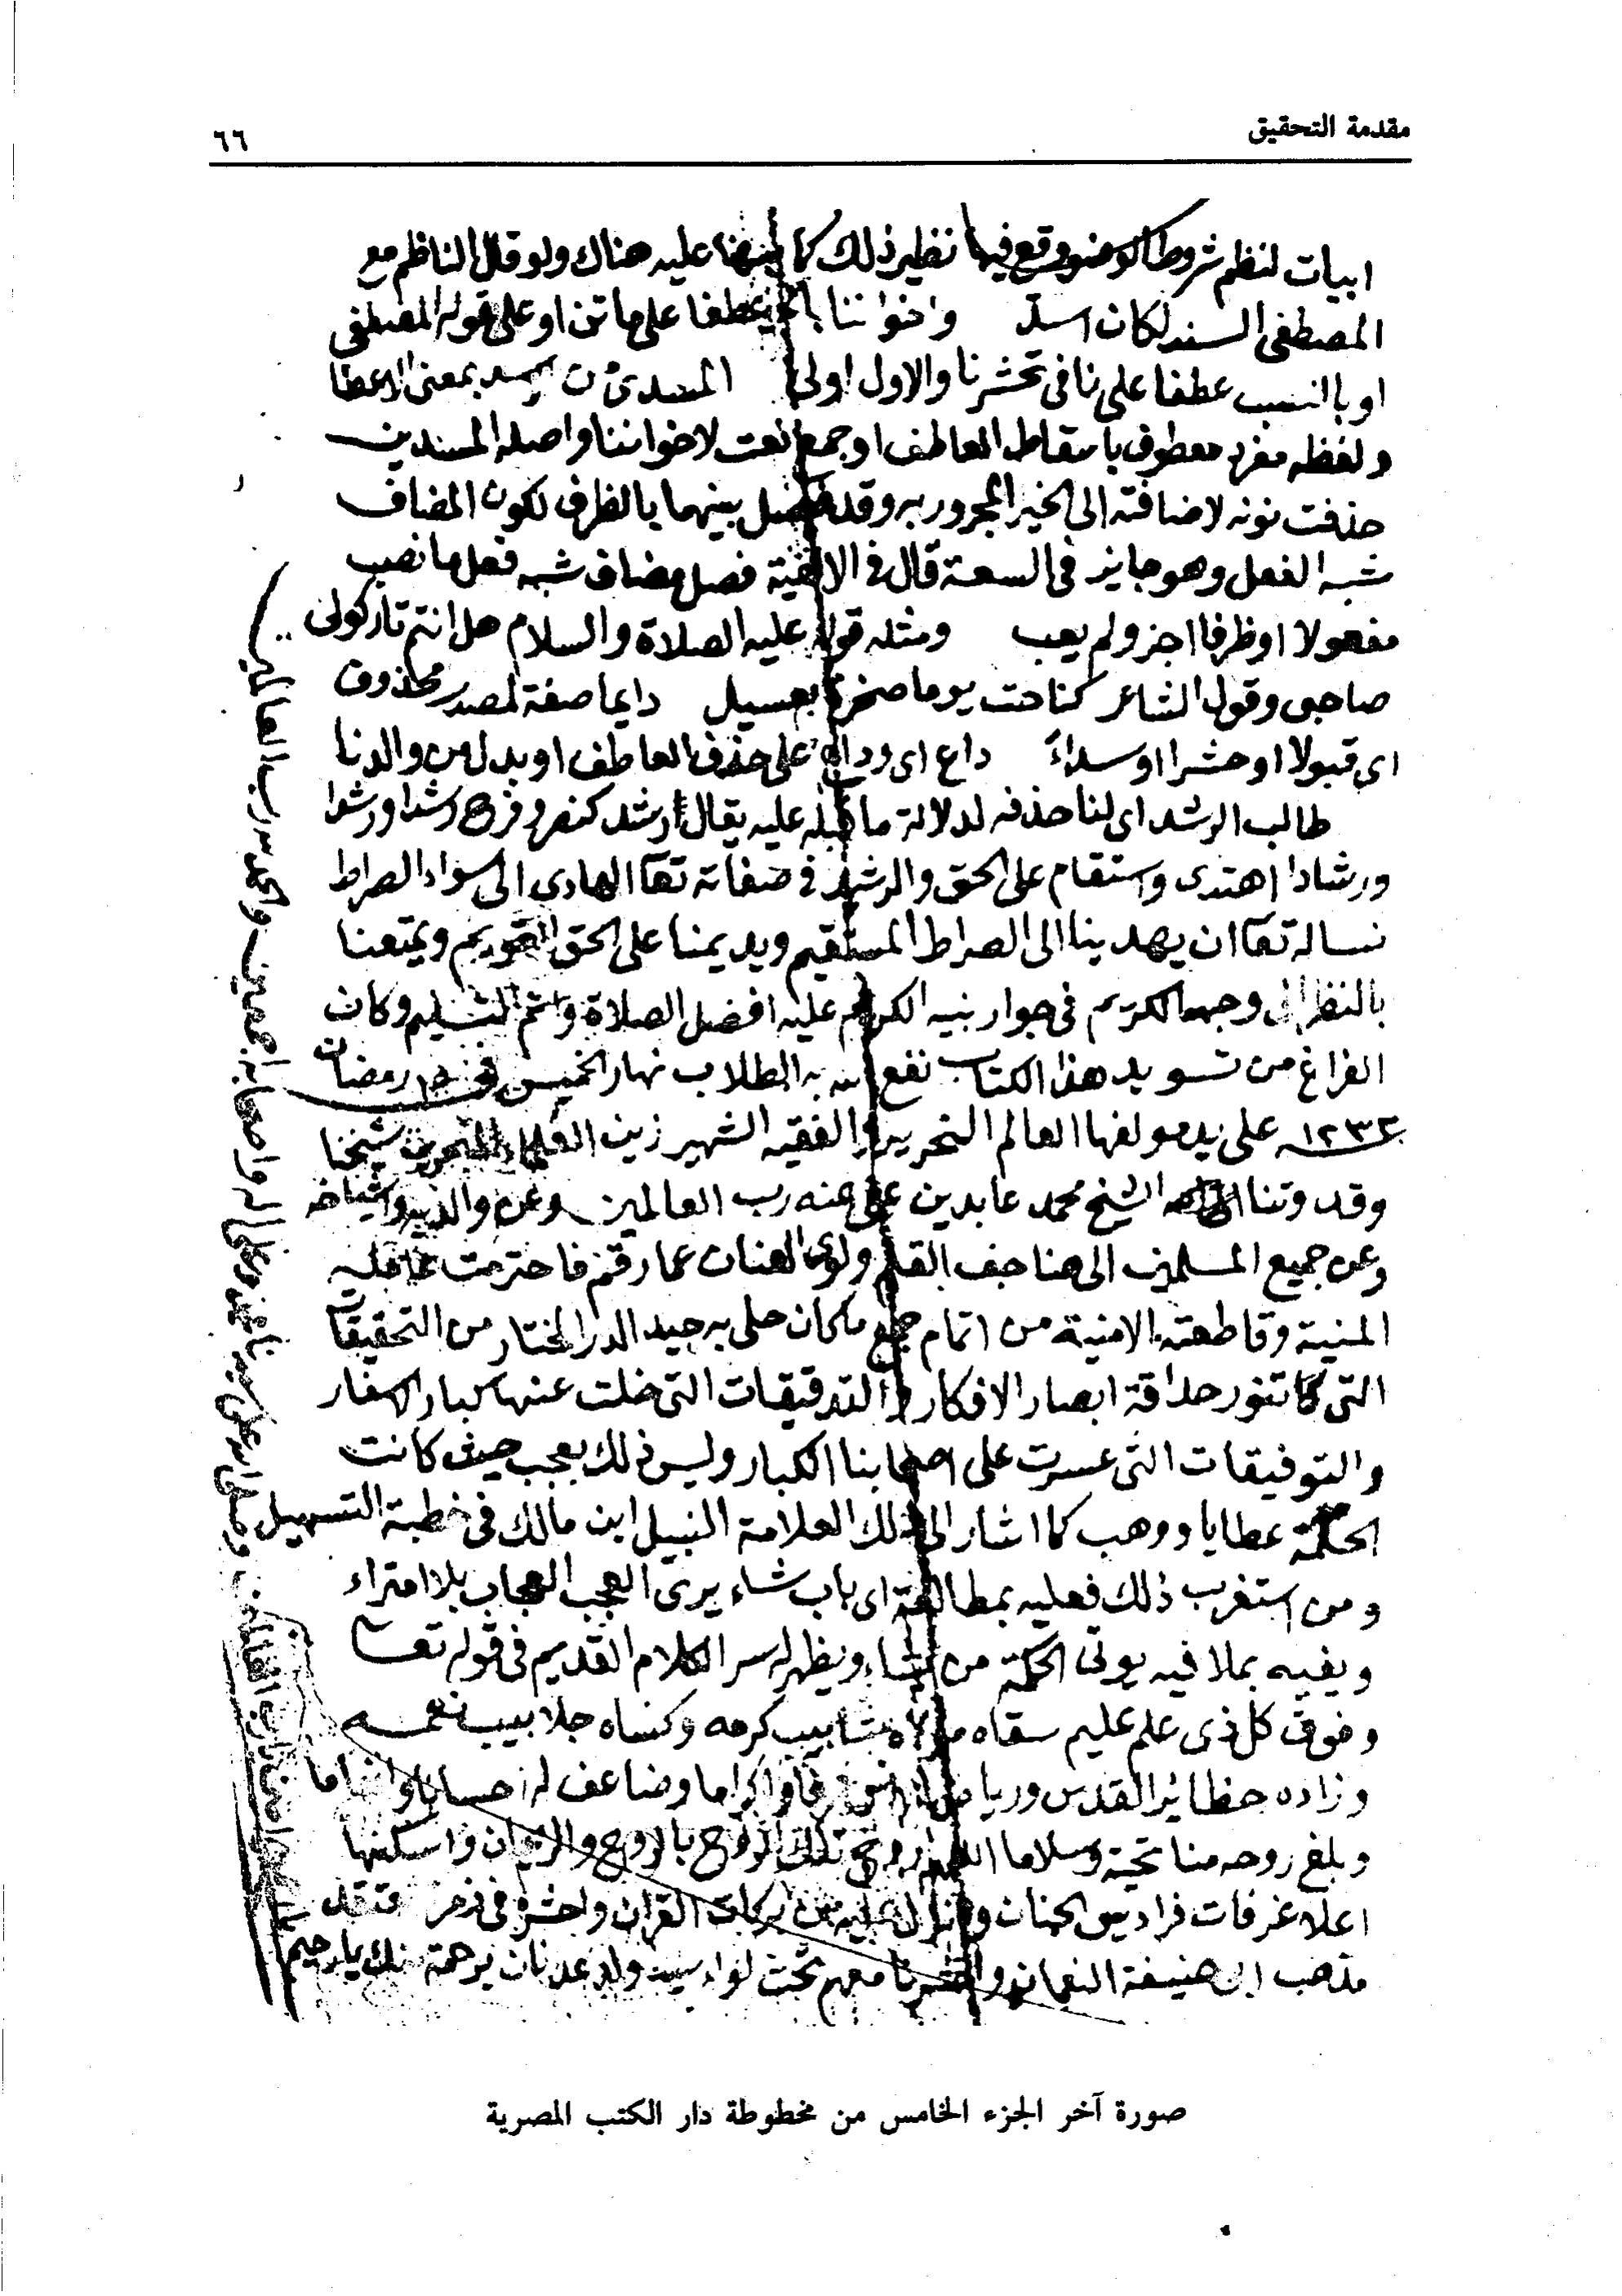 مقدمة التحقيق
٦٦
ابيات لنظم شروط الوضو وقع فيها نظير ذلك كما نبهنا عليه هناك ولو قال الناظم مع
المصطفى السند لكان اسدّ واخواننا بالجر عطفا على ما تن او على قوله المصطفى
او بالنصب عطفا على نا في تحشرنا والاول اولى المسدى من بمعنى الاعطا
ولفظه مفرد معطوف باسقاط العاطف او جمع نعت لاخواننا واصله المسندين
حذفت نونه لاضافته الى الخير المجرور به وقد فصل بينهما بالظرف لكون المضاف
شبه الفعل وهو جايز في السعة قال في الالفية فصل مضاف شبه فعل ما نصب
مفعولا او ظرفا اجز ولم يعب ومثله قوله عليه الصلاة والسلام هل انتم تاركو لى
صاحبى وقول الشاعر كناحت يوما صخرة بعسيل دايما صفة لمصدر محذوف
اى قبولا او حشرا او سداءً داع اى وداع على حذف العاطف او بدل من والدنا
طالب الرشد اى لنا حذفه لدلالة ما قبله عليه يقال رشد كنصر وفرح رشدا ورشدا
ورشادا اهتدى واستقام على الحق والرشيد في صفاته تعا الهادى الى سواء الصراط
نساله تعا ان يهدينا الى الصراط المستقيم ويديمنا على الحق القويم ويمتعنا
بالنظر الى وجهه الكريم فى جوار نبيه الكريم عليه افضل الصلاة واتم التسليم وكان
الفراغ من تسويد هذا الكتاب نفع الله به الطلاب نهار الخميس رمضان
١٢٣٢ على يد مولفها العالم النحرير والفقيه الشهير زين العلماء المتبحرين شيخنا
وقدوتنا الشيخ محمد عابدين عفى عنه رب العالمين وعن والديه واشياخه
وعن جميع المسلمين الى هنا جف القلم ولوى العنان عما رقم فاخترمت
المنية وقاطعته الامنية من اتمام جمع ما كان حلى به جيد الدر المختار من التحقيقات
التى تنور حداقة ابصار الافكار والتدقيقات التى خلت عنها كبار الاسفار
والتوفيقات التى عسرت على اصحابنا الكبار وليس ذلك بعجب حيث كانت
الحكمة عطايا ووهب كما اشار الى ذلك العلامة النبيل ابن مالك في خطبة التسهيل
ومن استغرب ذلك فعليه بمطالعة اى باب شاء يرى العجب العجاب بلا امتراء
ويفيه بملا فيه يوتى الحكمة من يشاء ويظهر له سر الكلام القديم فى قوله تعا
وفوق كل ذى علم عليم سقاه مولاه شابيب كرمه وكساه جلابيب نعمه
وزاده حظائر القدس ورياض الانس واكراما وضاعف له احسانا وانعاما
وبلغ روحه منا تحية وسلاما اللهم روح تلك الروح بالروح والريحان واسكنها
اعلا غرفات فراديس الجنان وانزل عليه من بركات القران واحشره فى زمر
مذهب ابى حنيفة النعمان واحشرنا معهم تحت لواء سيد ولد عدنان برحمة منك يا رحيم
صورة آخر الجزء الخامس من مخطوطة دار الكتب المصرية